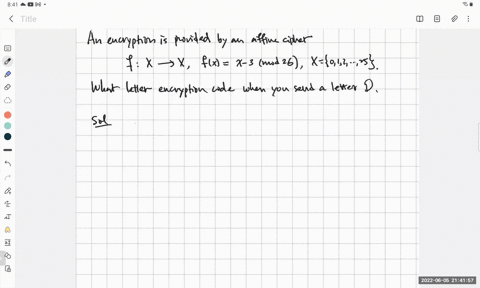 8:41
Title
An encryption is provided by an affine cipher
f: X → X, f(x) = x-3 (mod 26), X={0,1,2,...,25}.
What letter encryption code when you send a letter D.
Sol
2022-06-05 21:41:57